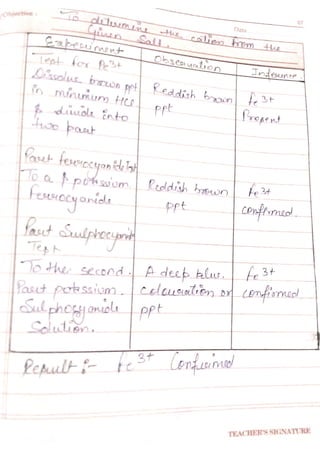 Objective :
Date
67
To determine the cation from the
Given Salt.
Experiment Observation Inference
Test for Fe3+
Dissolve brown ppt Reddish brown Fe 3+
in minimum HCl ppt Present
& divide into
two part
Pot ferrocyanide Test
To a p potassium Reddish brown Fe 3+
Ferrocyanide ppt confirmed.
Pot Sulphocyanide
Test
To the second. A deep blue. Fe 3+
Part potassium. colouration or confirmed
Sulphocyanide ppt
Solution.
Result :- Fe 3+ Confirmed
TEACHER'S SIGNATURE